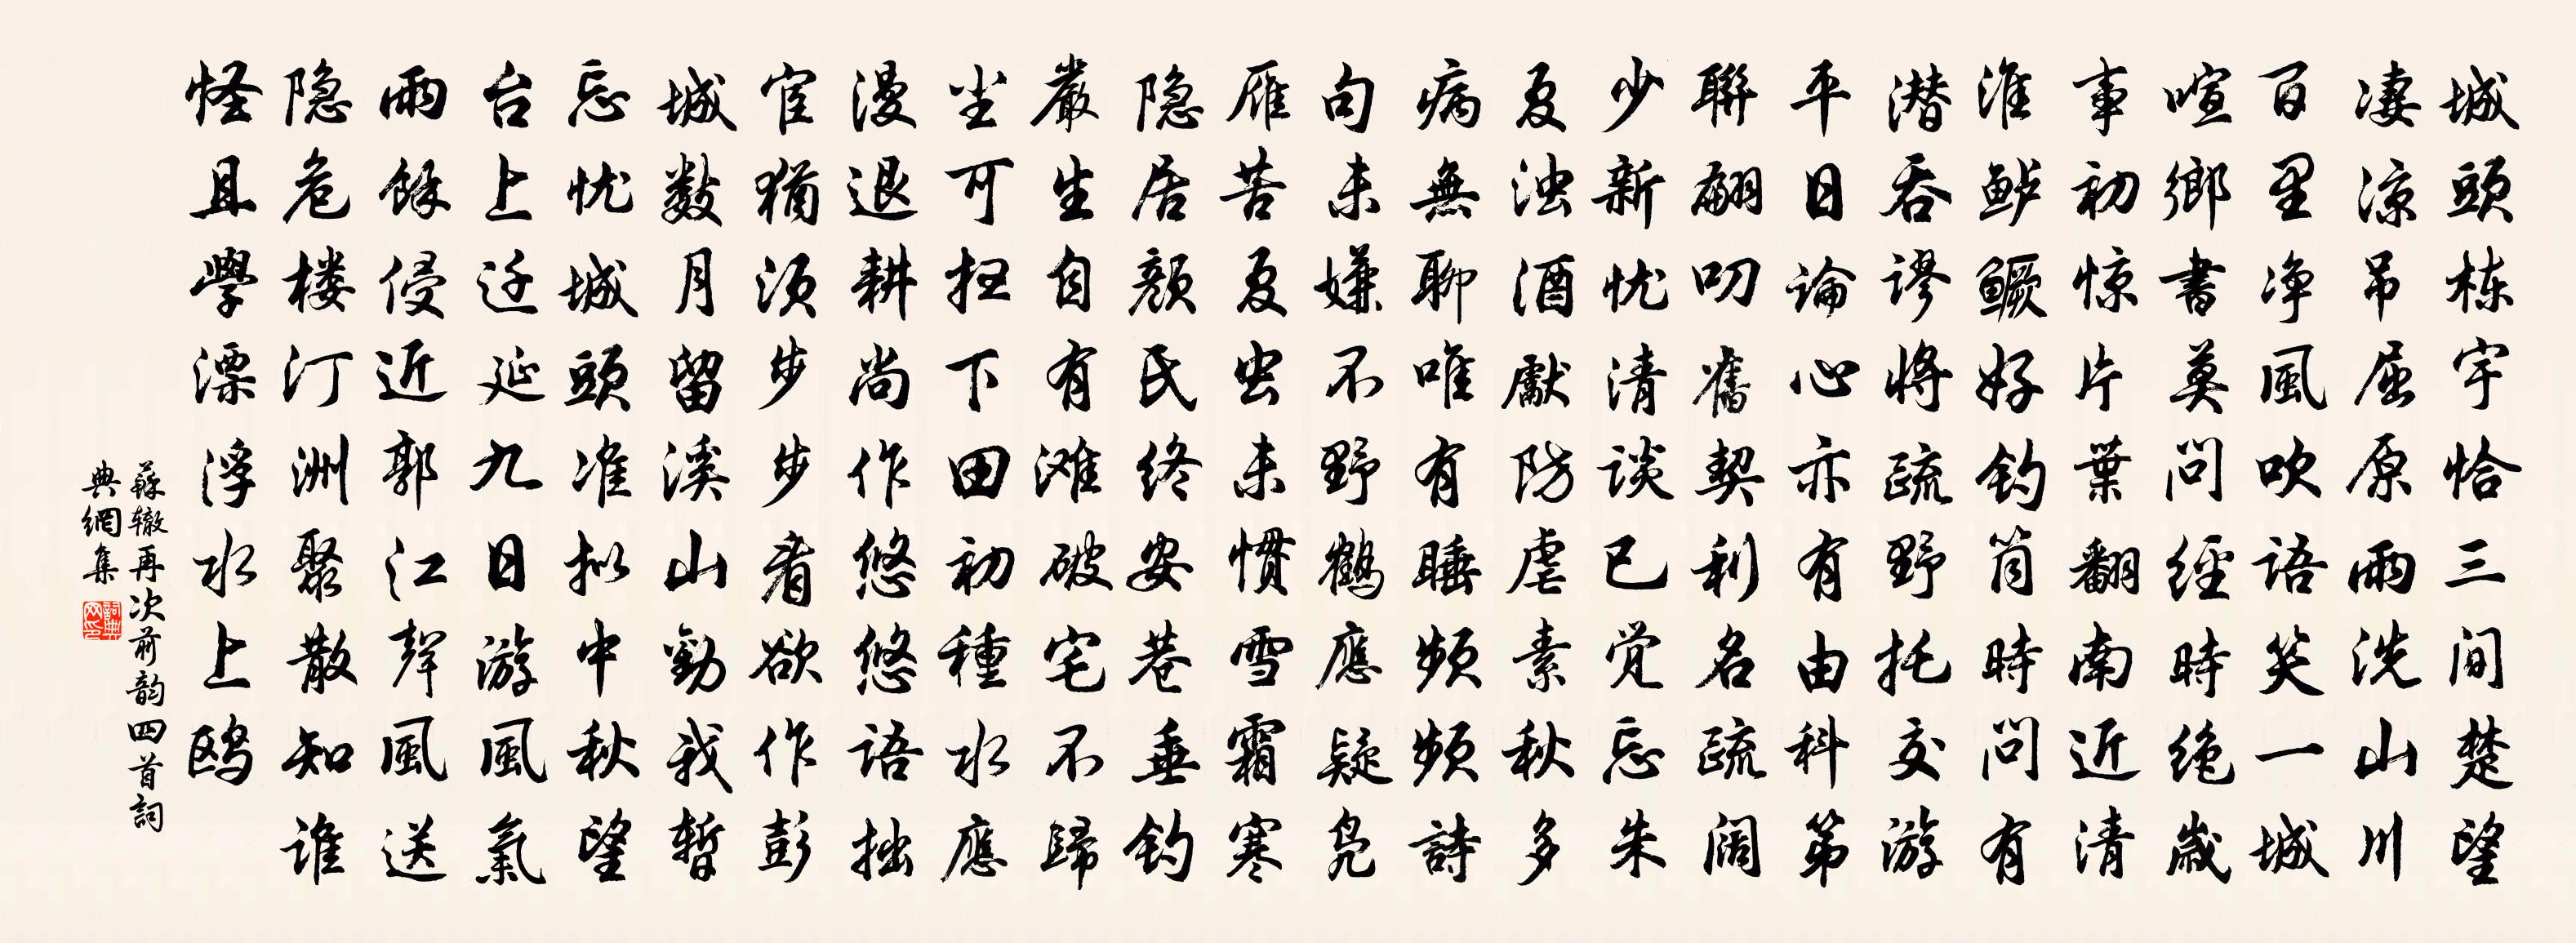 城頭栋宇恰三间楚望
凄凉吊屈原雨洗山川
百里净風吹語笑一城
喧鄉書莫问經時绝歲
事初惊片葉翻南近清
淮鲈鳜好钓筒時问有
潜吞谬将疏野托交游
平日论心亦有由科第
聯翩叨舊契利名疏阔
少新忧清谈已觉忘朱
夏浊酒獻防虐素秋多
病無聊唯有睡频频詩
句未嫌不野鹤應疑凫
雁苦夏虫未慣雪霜寒
隐居颜氏终安巷垂钓
嚴生自有滩破宅不歸
尘可扫下田初種水應
漫退耕尚作悠悠語拙
宦猶须步步看欲作彭
城数月留溪山勸我暂
忘忧城頭准拟中秋望
台上迁延九日游風氣
雨餘侵近郭江聲風送
隐危楼汀洲聚散知谁
怪且學漂浮水上鸥
蘇辙再次前韵四首詞
典網集
詞典网印